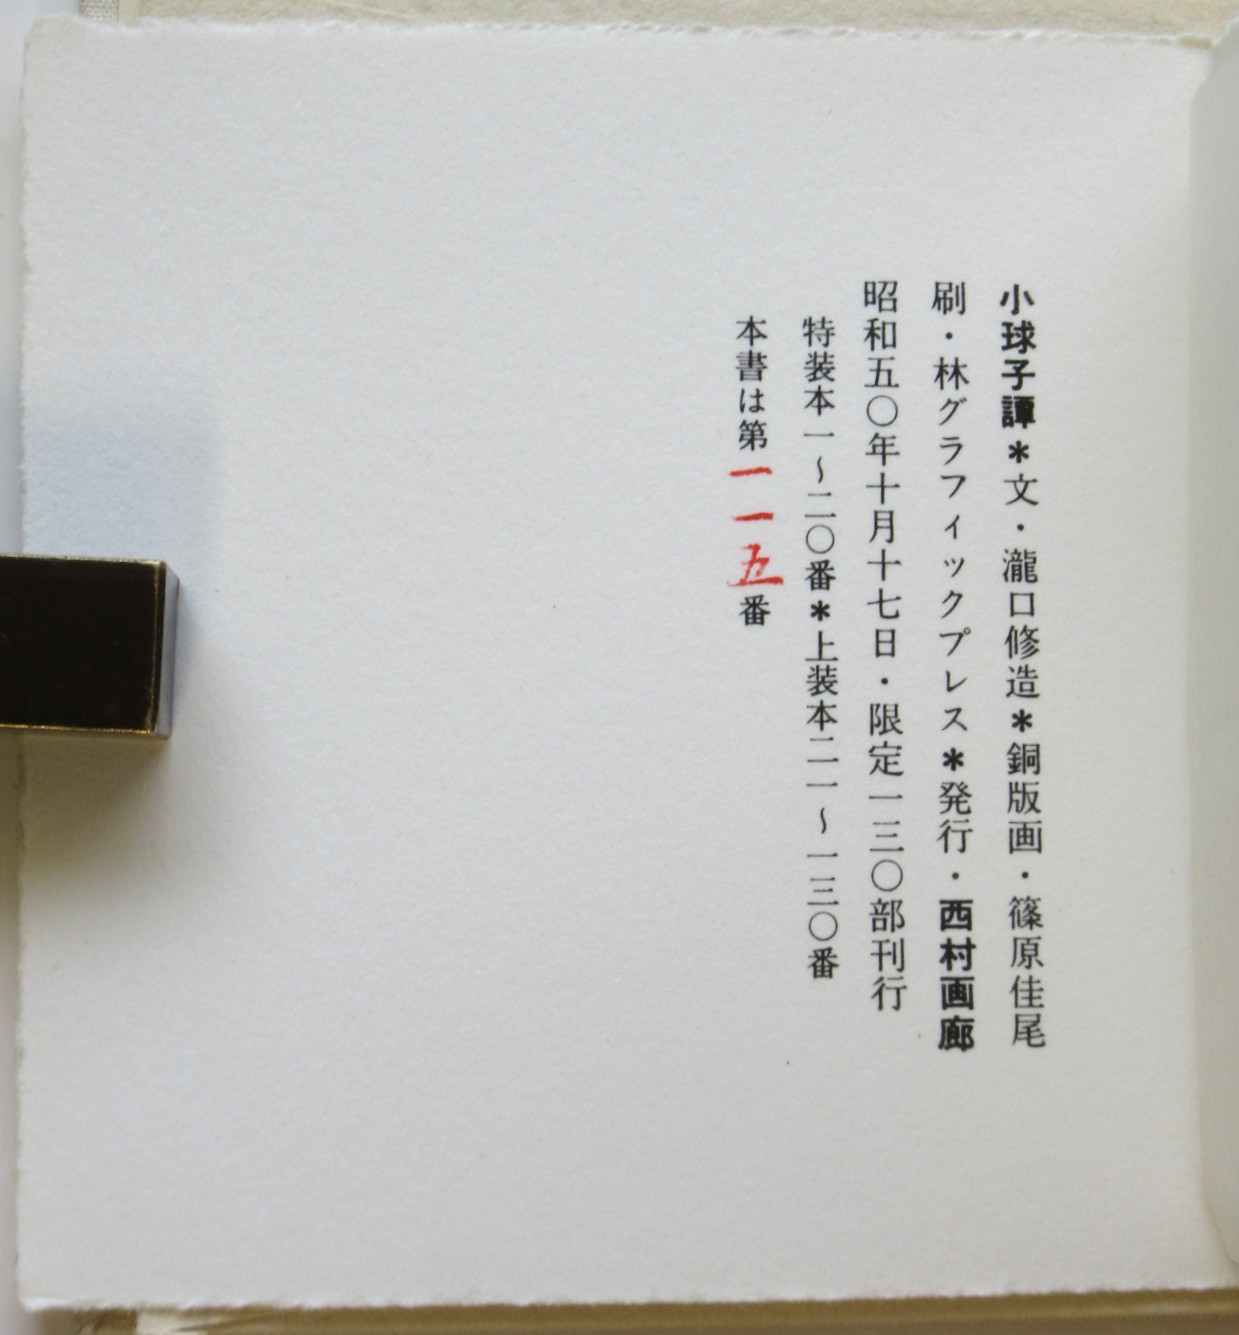 小球子譚＊文・瀧口修造＊銅版画・篠原佳尾
刷・林グラフィックプレス＊発行・西村画廊
昭和五〇年十月十七日・限定一三〇部刊行
特装本一〜二〇番＊上装本二一〜一三〇番
本書は第一一五番